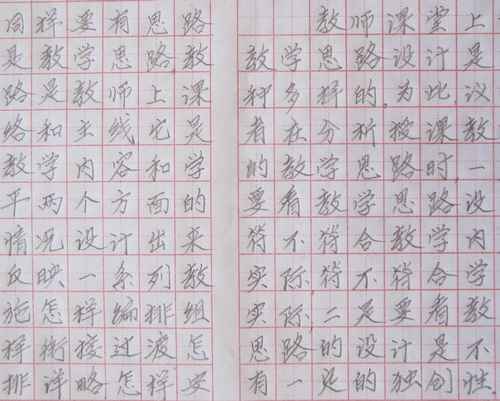 同样要有思路
是教学思路,教
路是教师上课
络和主线它是
教学内容和学
平两个方面的
情况设计出来
反映一系列教
施怎样编排组
样衔接过渡怎
排详略怎样安
教师课堂上
教学思路设计是
种多样的,为此,议
者在分析授课教
的教学思路时,一
要看教学思路设
符不符合教学内
实际,符不符合学
实际,二是要看教
思路的设计是不
有一定的独创性